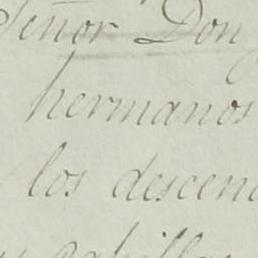 Señor Don
hermanos
los descen